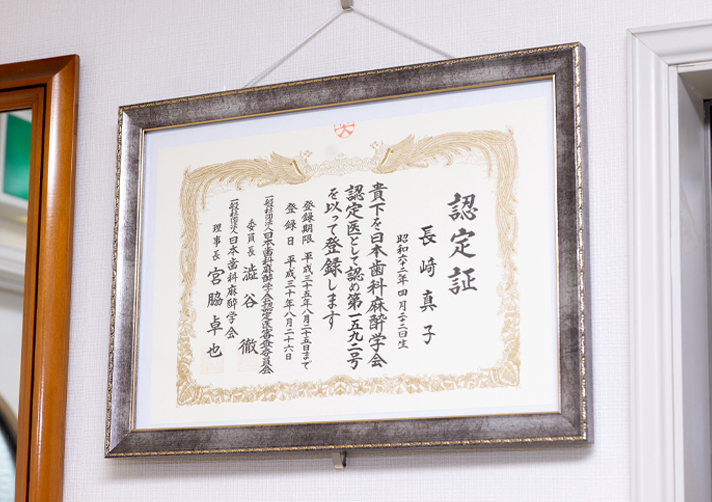 認定証
長﨑真子
昭和六十二年四月二十二日生
貴下を日本歯科麻酔学会
認定医として認め第一五九二号
を以って登録します
登録期限 平成三十五年八月二十五日まで
登録日 平成三十年八月二十六日
一般社団法人日本歯科麻酔学会認定医審査委員会
委員長 澁谷 徹
一般社団法人日本歯科麻酔学会
理事長 宮脇卓也